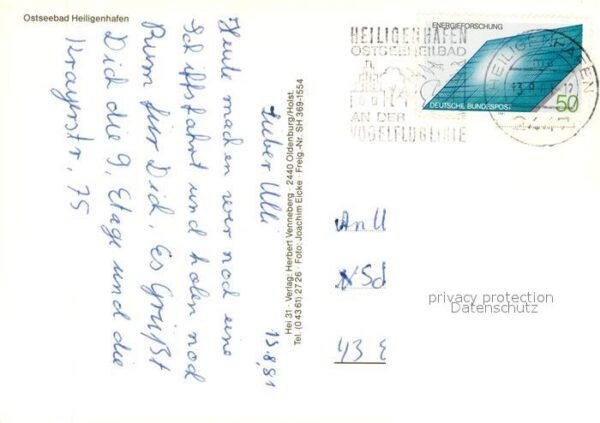 Ostseebad Heiligenhafen
ENERGIEFORSCHUNG
DEUTSCHE BUNDESPOST
50
HEILIGENHAFEN
OSTSEEHEILBAD
AN DER
VOGELFLUGLINIE
HEILIGENHAFEN
Hei 31 · Verlag: Herbert Venneberg · 2440 Oldenburg/Holst.
Tel. (0 43 61) 27 26 · Foto: Joachim Eicke · Freig.-Nr. SH 369-1554
13.8.81
Lieber Ulli
Heute machen wir noch eine
Schiffsfahrt und holen noch
Rum für Dich. Es Grüßt
Dich die 9. Etage und die
75
An U
43 E
privacy protection
Datenschutz